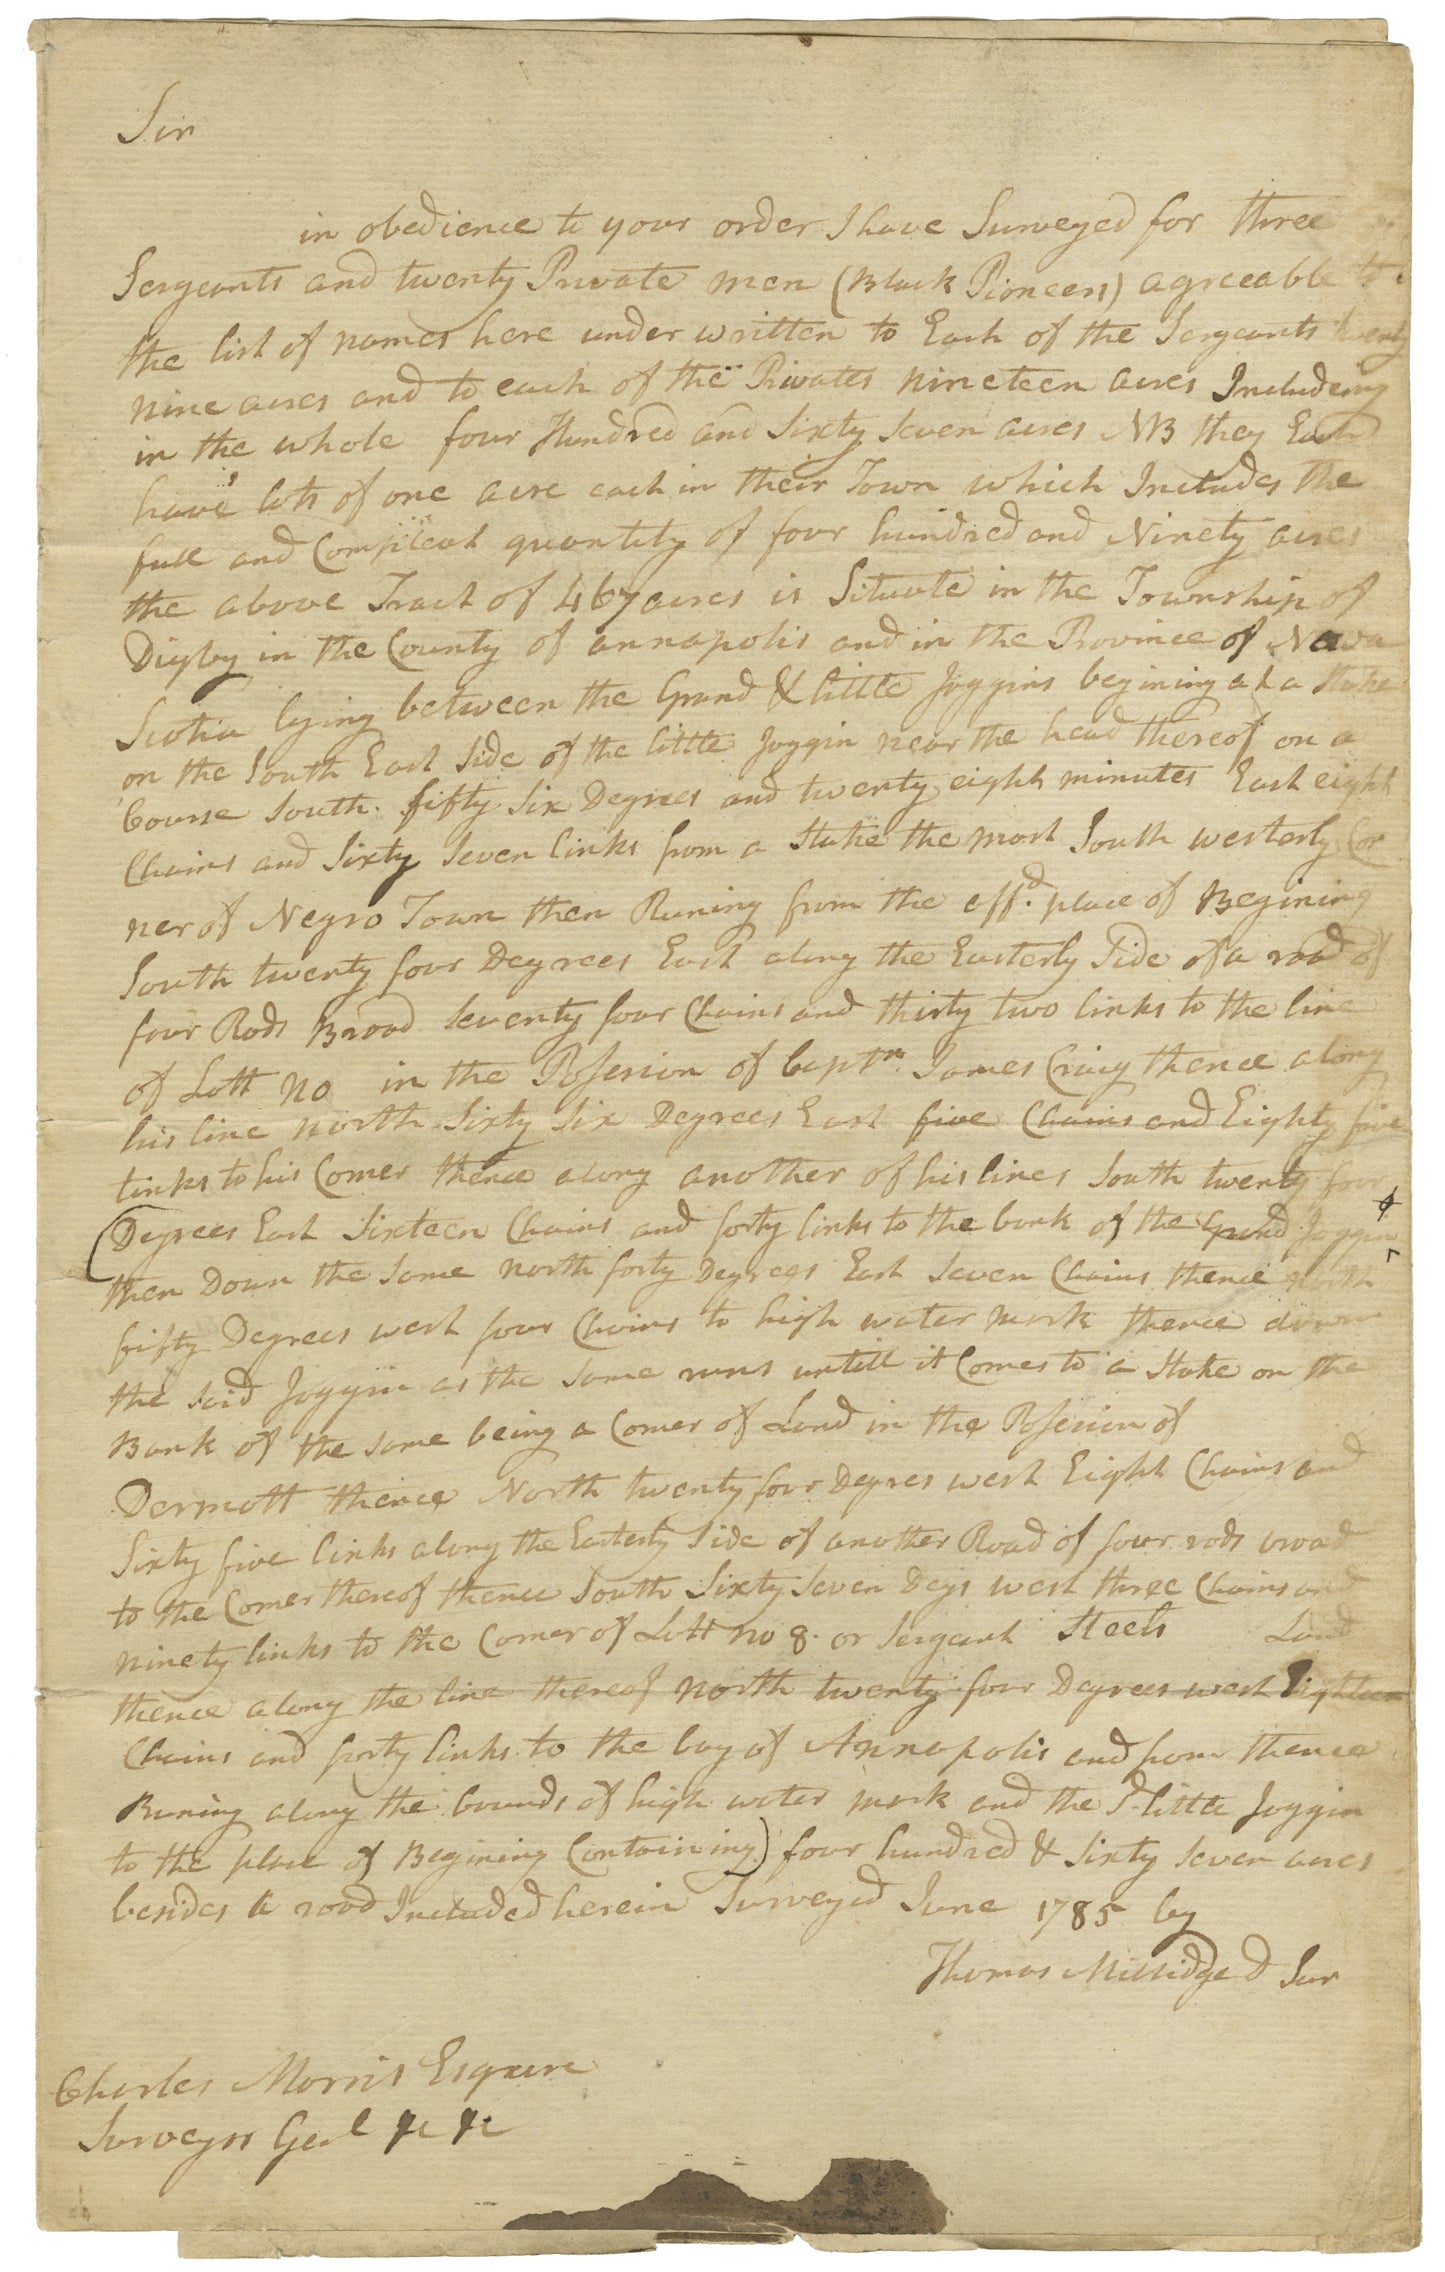 Sir
in obedience to your order I have Surveyed for three
Sergeants and twenty Private men (Black Pioneers) agreeable to
the list of names here under written to Each of the Sergeants twenty
nine acres and to each of the Privates nineteen acres Includeing
in the whole four Hundred and Sixty Seven acres NB they Each
have lots of one acre each in their Town which Includes the
full and Compleat quantity of four hundred and Ninety acres
the above Tract of 467 acres is Situate in the Township of
Digby in the County of annapolis and in the Province of Nova
Scotia lying between the Grand & little Joggins begining at a Stake
on the South East Side of the little Joggin near the head thereof on a
Course South fifty Six Degrees and twenty eight minutes East eight
Chains and Sixty Seven links from a Stake the most South westerly Cor
ner of Negro Town then Runing from the affd. place of Begining
South twenty four Degrees East along the Easterly Side of a road of
four Rods Broad Seventy four Chains and thirty two links to the line
of Lott no in the Possession of Captn. James Craig thence along
his line north Sixty Six Degrees East five Chains and Eighty five
links to his Corner thence along another of his lines South twenty four
Degrees East Sixteen Chains and forty links to the bank of the Grand Joggin
then Down the Same north forty Degrees East Seven Chains thence north
fifty Degrees west four Chains to high water mark thence down
the said Joggin as the Same runs untill it Comes to a Stake on the
Bank of the same being a Corner of Land in the Possession of
Dermott thence North twenty four Degres west Eight Chains and
Sixty five links along the Easterly Side of another Road of four rods broad
to the Corner thereof thence South Sixty Seven Degs west three Chains and
ninety links to the Corner of Lott no 8. or Sergeant Steels Land
thence along the line thereof north twenty four Degrees west Eighteen
Chains and forty links to the bay of Annapolis and from thence
Runing along the bounds of high water mark and the Sd little Joggin
to the place of Begining Containing) four hundred & Sixty Seven acres
besides a road Included herein Surveyed June 1785 by
Thomas Millidge D Sur
Charles Morris Esquire
Surveyor Genl &c &c